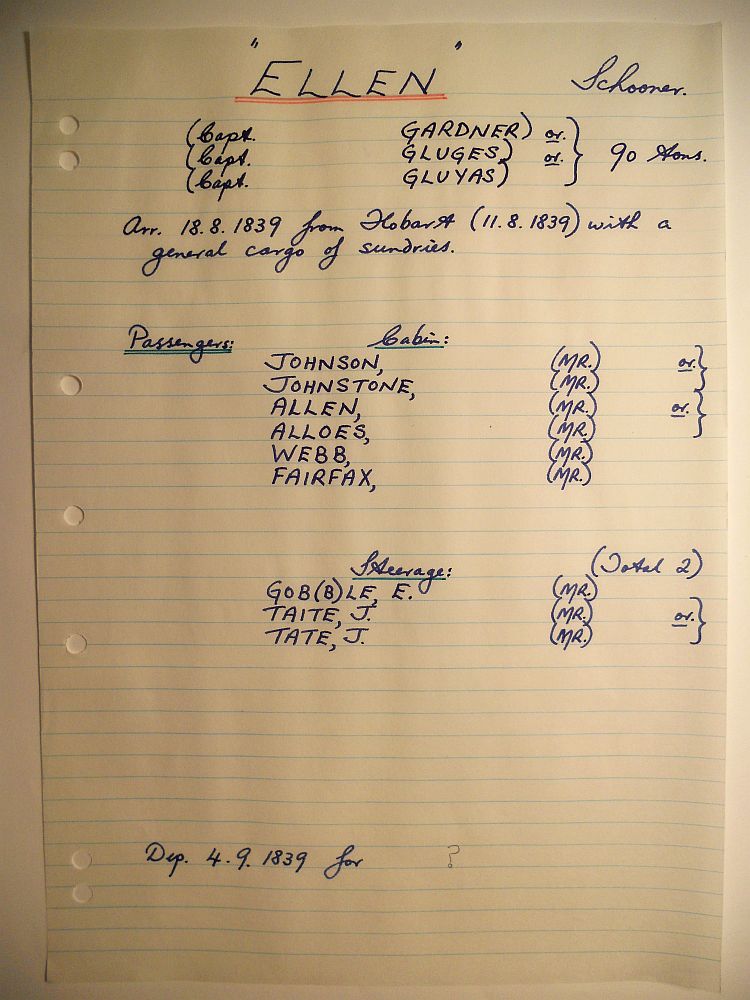 "ELLEN" Schooner.
(Capt. GARDNER) or.
(Capt. GLUGES) or. } 90 tons.
(Capt. GLUYAS)
Arr. 18.8.1839 from Hobart (11.8.1839) with a
general cargo of sundries.
Passengers: Cabin:
JOHNSON, (MR.) or. }
JOHNSTONE, (MR.)
ALLEN, (MR.) or. }
ALLOES, (MR.)
WEBB, (MR.)
FAIRFAX, (MR.)
Steerage: (Total 2)
GOB(B)LE, E. (MR.)
TAITE, J. (MR.) or. }
TATE, J. (MR.)
Dep. 4.9.1839 for ?